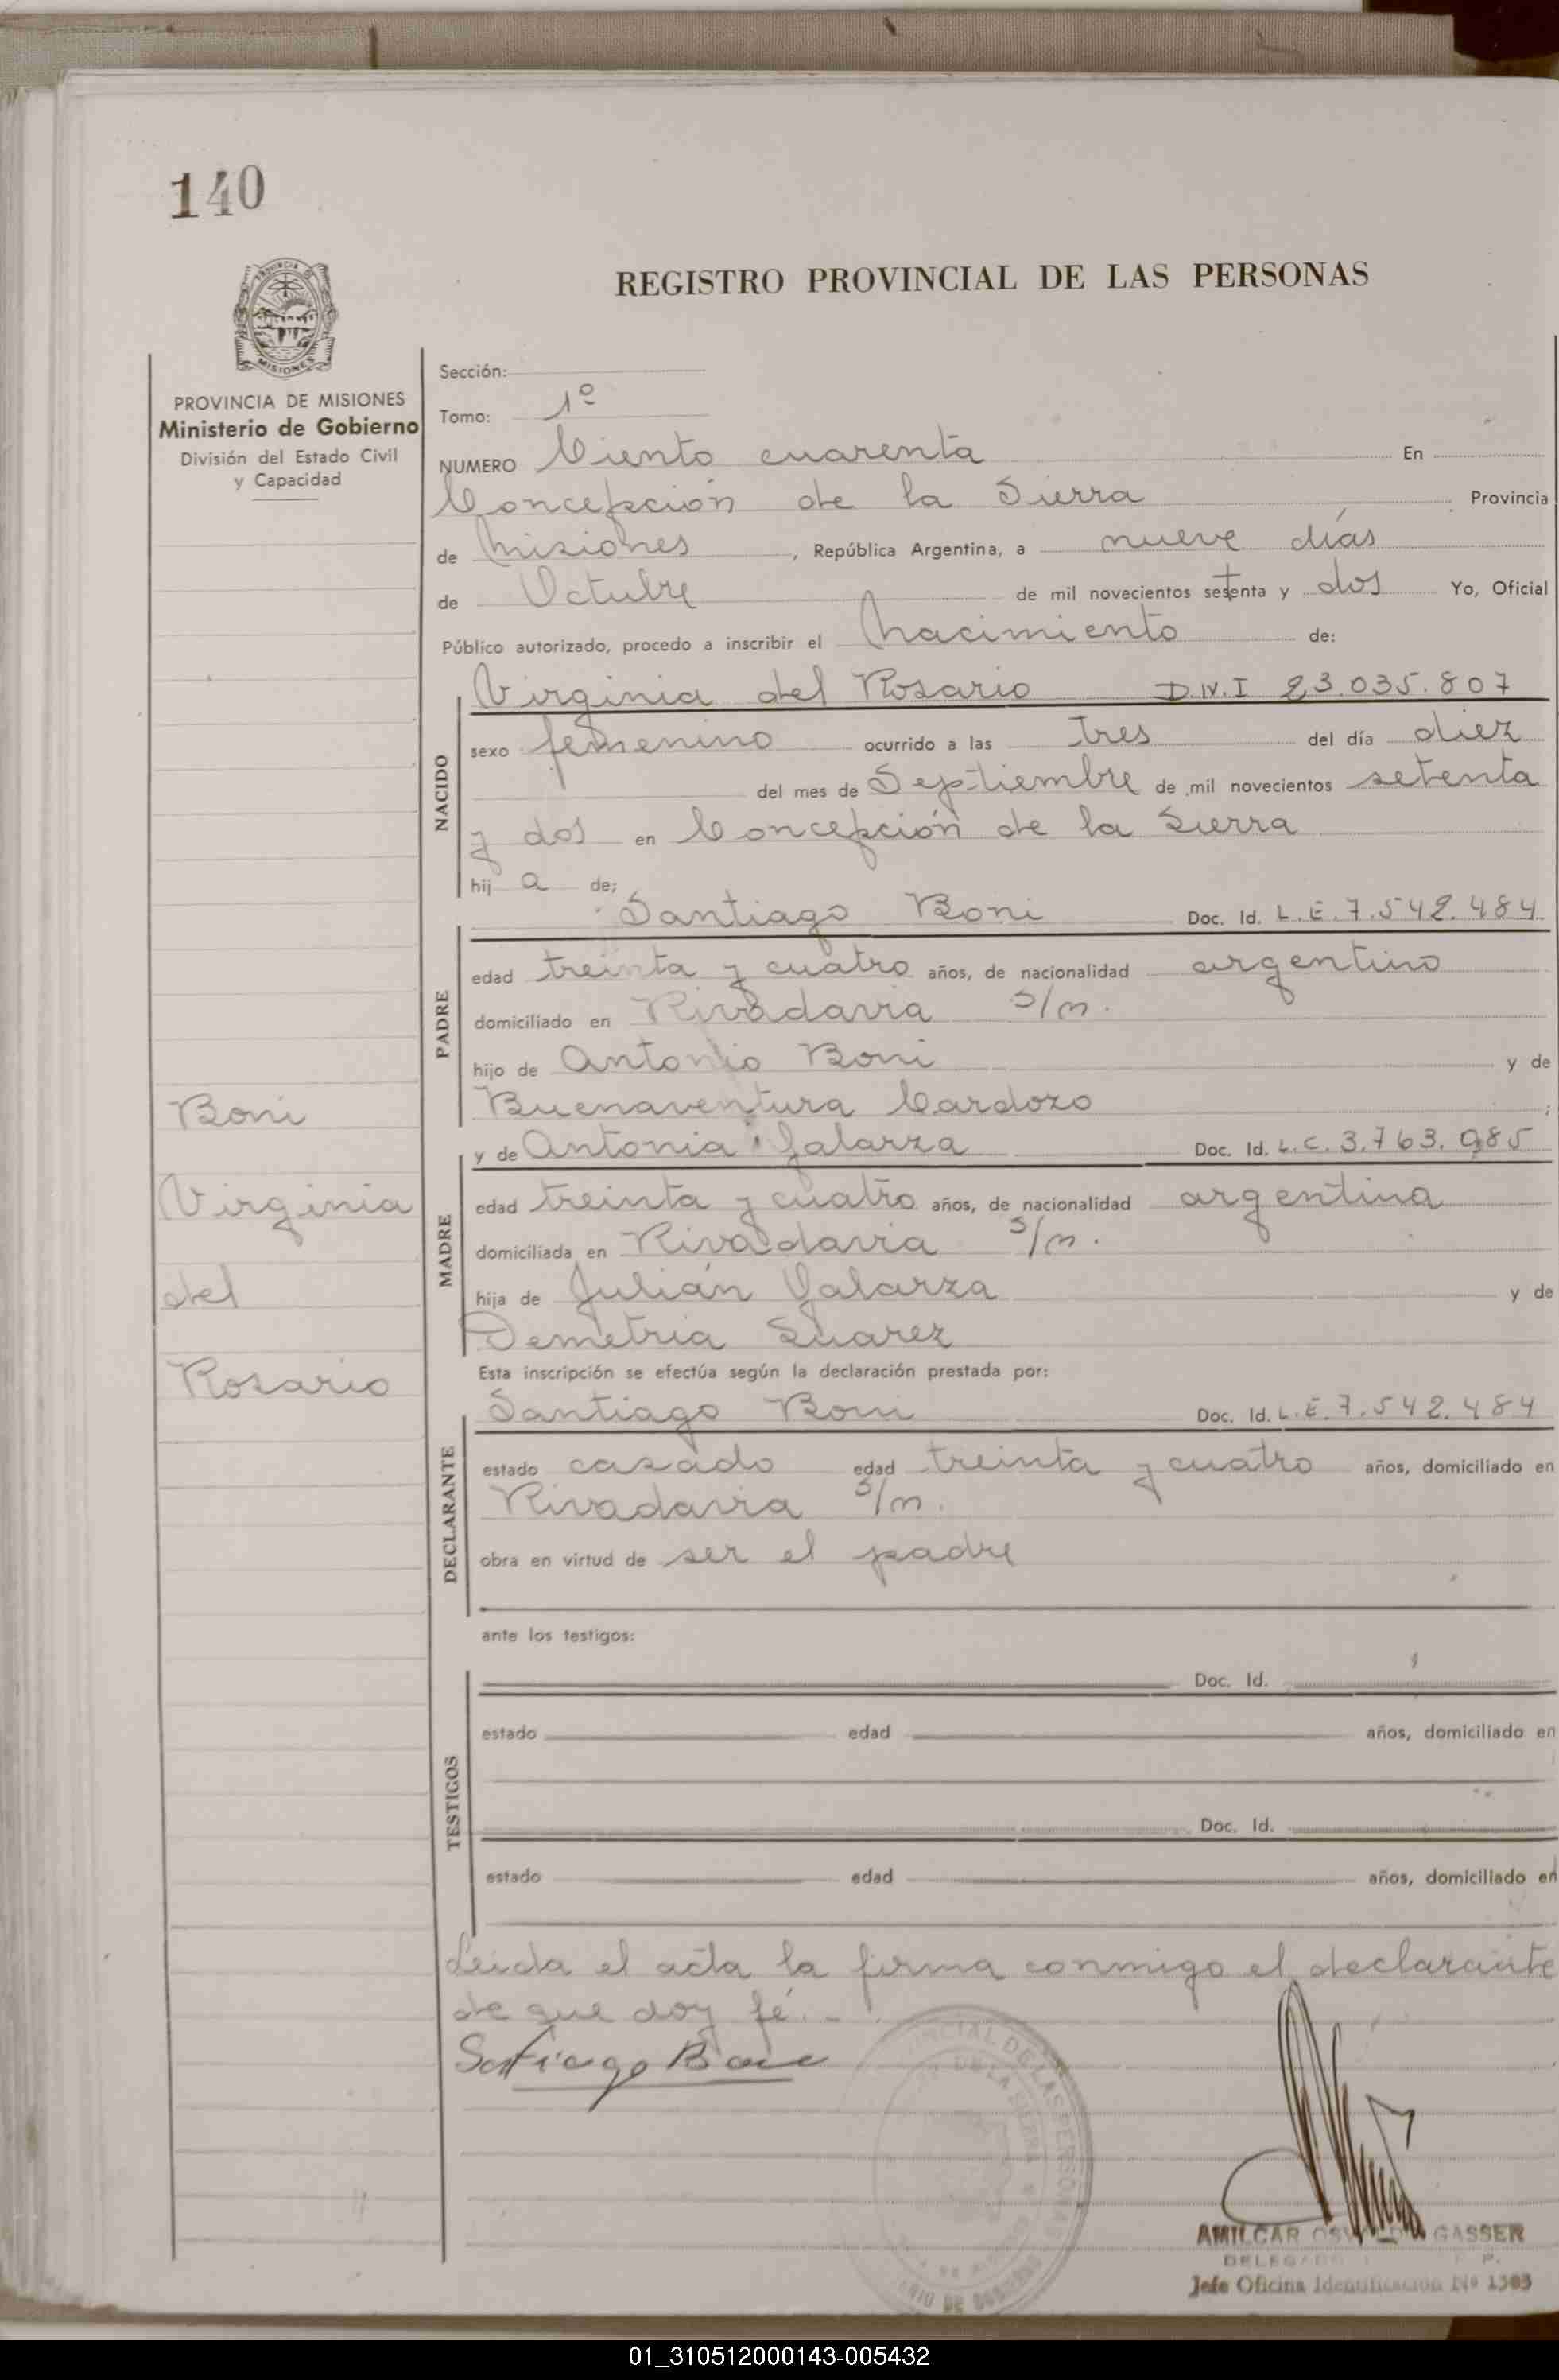 140
REGISTRO PROVINCIAL DE LAS PERSONAS
MISIONES
PROVINCIA DE MISIONES
Ministerio de Gobierno
División del Estado Civil
y Capacidad
Boni
Virginia
del
Rosario
Sección:
Tomo: 1º
NUMERO Ciento cuarenta En
Concepción de la Sierra Provincia
de Misiones, República Argentina, a nueve días
de Octubre de mil novecientos setenta y dos Yo, Oficial
Público autorizado, procedo a inscribir el Nacimiento de:
Virginia del Rosario D.N.I 23.035.807
NACIDO
sexo femenino ocurrido a las tres del día diez
del mes de Septiembre de mil novecientos setenta
y dos en Concepción de la Sierra
hij a de:
Santiago Boni Doc. Id. L.E. 7.542.484
PADRE
edad treinta y cuatro años, de nacionalidad argentino
domiciliado en Rivadavia s/n.
hijo de Antonio Boni y de
Buenaventura Cardozo ;
y de Antonia Galarza Doc. Id. L.C. 3.763.985
MADRE
edad treinta y cuatro años, de nacionalidad argentina
domiciliada en Rivadavia s/n.
hija de Julián Galarza y de
Demetria Suarez
Esta inscripción se efectúa según la declaración prestada por:
Santiago Boni Doc. Id. L.E. 7.542.484
DECLARANTE
estado casado edad treinta y cuatro años, domiciliado en
Rivadavia s/n.
obra en virtud de ser el padre
ante los testigos:
Doc. Id.
TESTIGOS
estado edad años, domiciliado en
Doc. Id.
estado edad años, domiciliado en
Leida el acta la firma conmigo el declarante
de que doy fé.-
Santiago Boni
AMILCAR OSVALDO GASSER
DELEGADO
Jefe Oficina Identificación Nº 1303
01_310512000143-005432